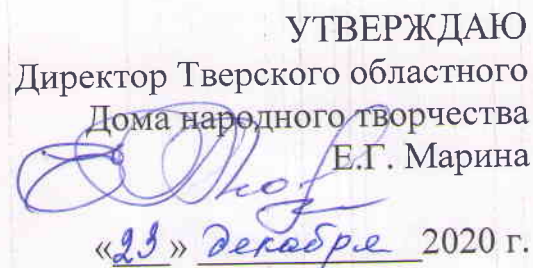 УТВЕРЖДАЮ
Директор Тверского областного
Дома народного творчества
Е.Г. Марина
«23» декабря 2020 г.